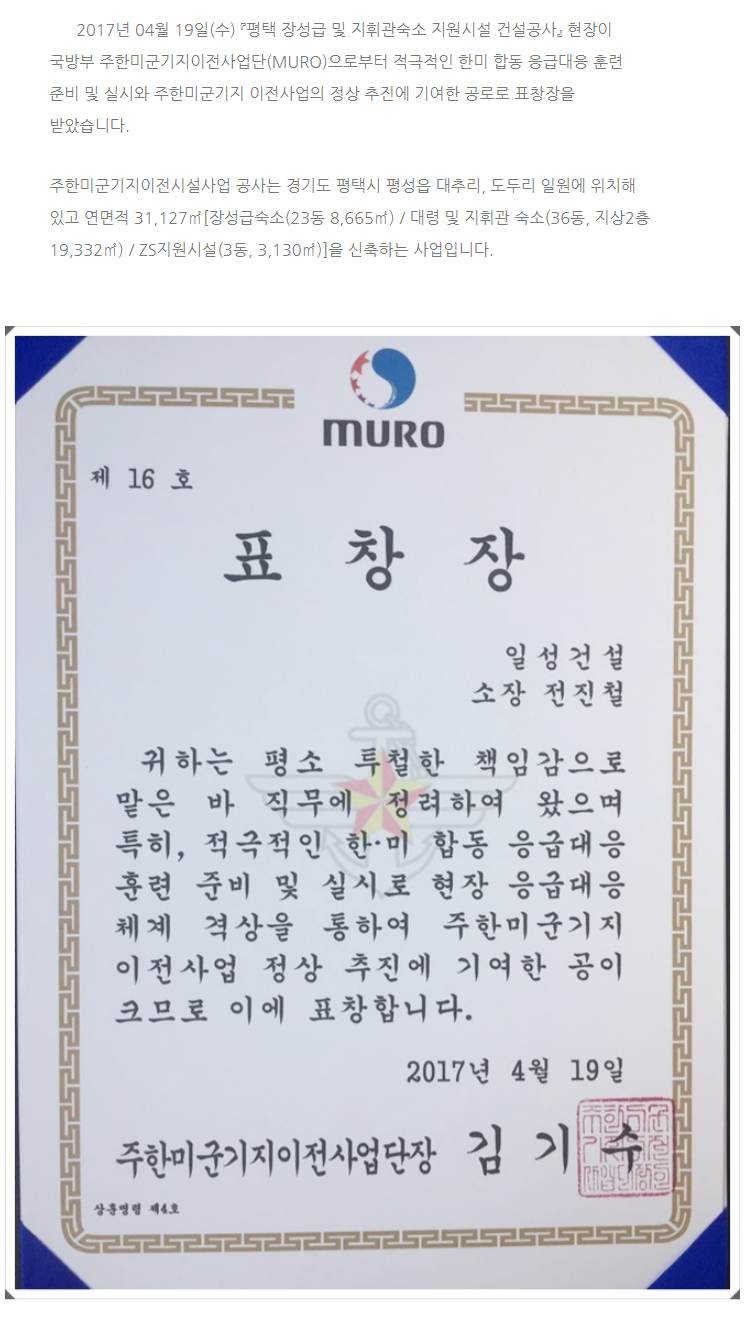 2017년 04월 19일(수) 『평택 장성급 및 지휘관숙소 지원시설 건설공사』 현장이
국방부 주한미군기지이전사업단(MURO)으로부터 적극적인 한미 합동 응급대응 훈련
준비 및 실시와 주한미군기지 이전사업의 정상 추진에 기여한 공로로 표창장을
받았습니다.
주한미군기지이전시설사업 공사는 경기도 평택시 평성읍 대추리, 도두리 일원에 위치해
있고 연면적 31,127㎡[장성급숙소(23동 8,665㎡) / 대령 및 지휘관 숙소(36동, 지상2층
19,332㎡) / ZS지원시설(3동, 3,130㎡)]을 신축하는 사업입니다.
MURO
제 16 호
표 창 장
일성건설
소장 전진철
귀하는 평소 투철한 책임감으로
맡은 바 직무에 정려하여 왔으며
특히, 적극적인 한·미 합동 응급대응
훈련 준비 및 실시로 현장 응급대응
체계 격상을 통하여 주한미군기지
이전사업 정상 추진에 기여한 공이
크므로 이에 표창합니다.
2017년 4월 19일
주한미군기지이전사업단장 김 기 수
상훈명령 제4호